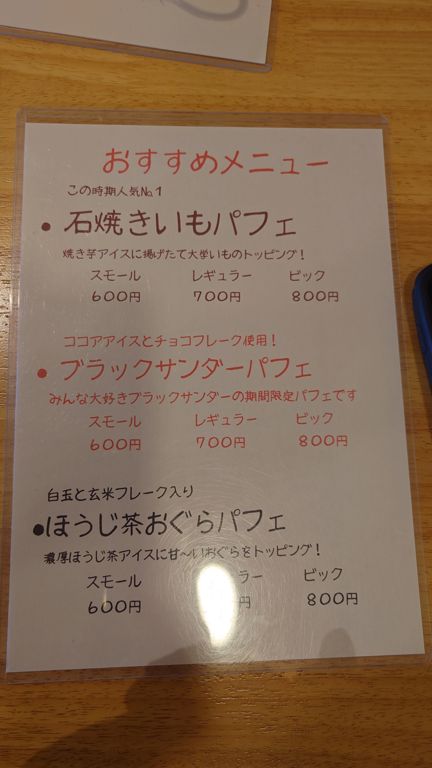 おすすめメニュー
この時期人気№1
● 石焼きいもパフェ
焼き芋アイスに揚げたて大学いものトッピング!
スモール レギュラー ビック
600円 700円 800円
ココアアイスとチョコフレーク使用!
● ブラックサンダーパフェ
みんな大好きブラックサンダーの期間限定パフェです
スモール レギュラー ビック
600円 700円 800円
白玉と玄米フレーク入り
●ほうじ茶おぐらパフェ
濃厚ほうじ茶アイスに甘〜いおぐらをトッピング!
スモール ラー ビック
600円 円 800円